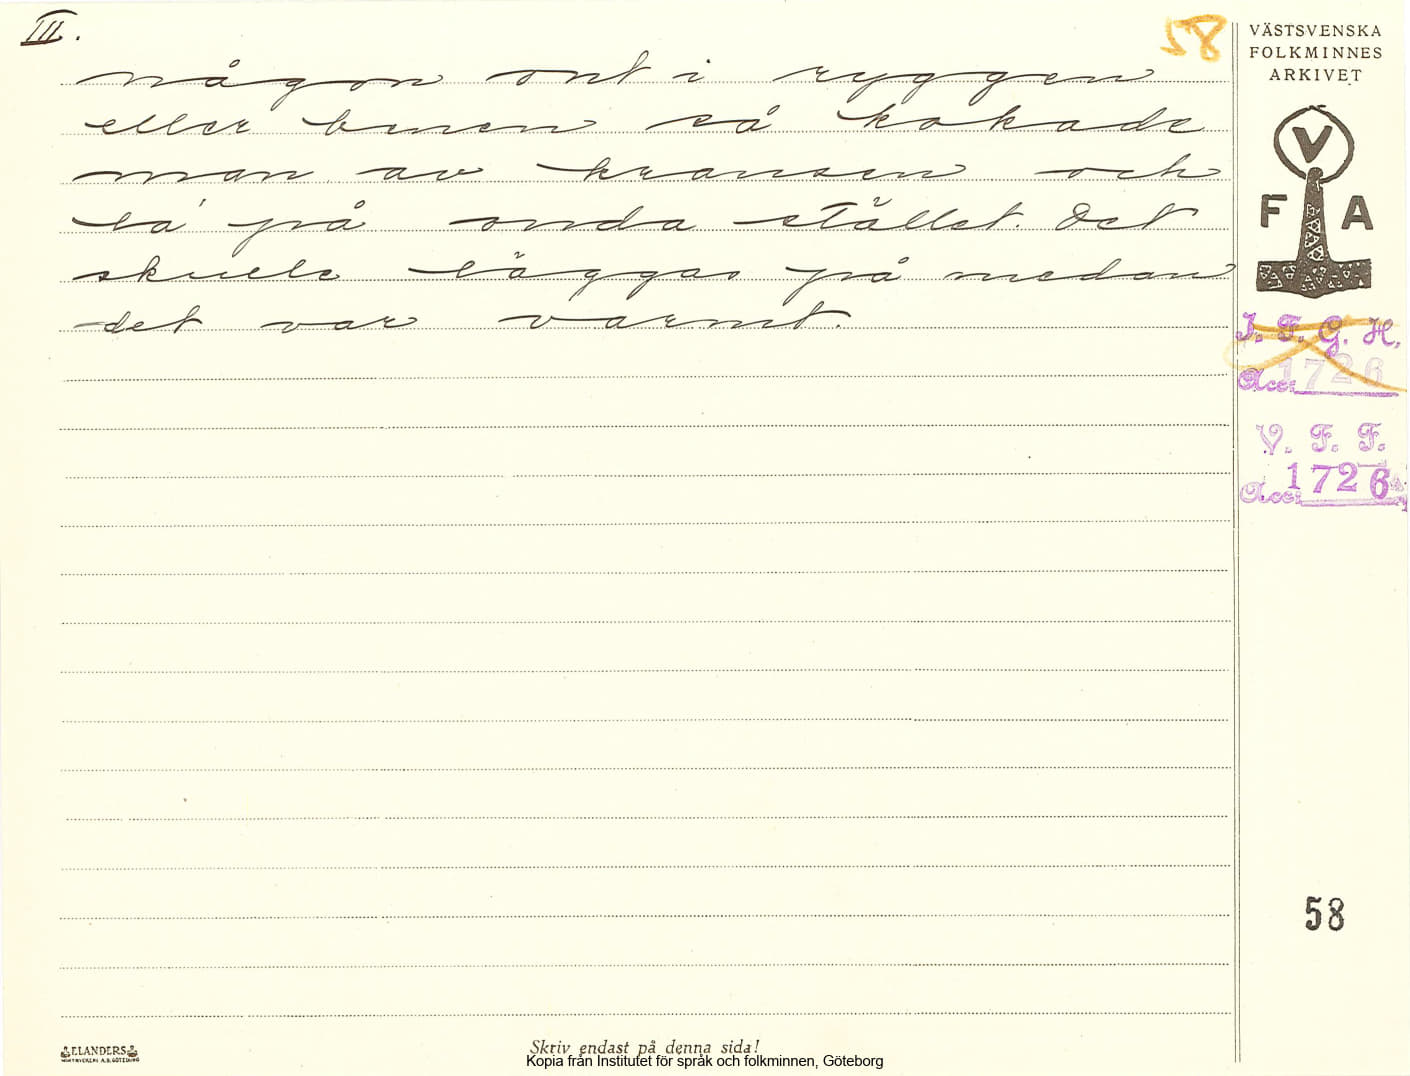 III.
58
någon ont i ryggen
eller benen så kokade
man av kransen och
la' på onda stället. Det
skulle läggas på medan
det var varmt.
VÄSTSVENSKA
FOLKMINNES
ARKIVET
V
F A
I. F. G. H.
Acc. 1726
V. F. F.
Acc. 1726
58
ELANDERS
Skriv endast på denna sida!
Kopia från Institutet för språk och folkminnen, Göteborg